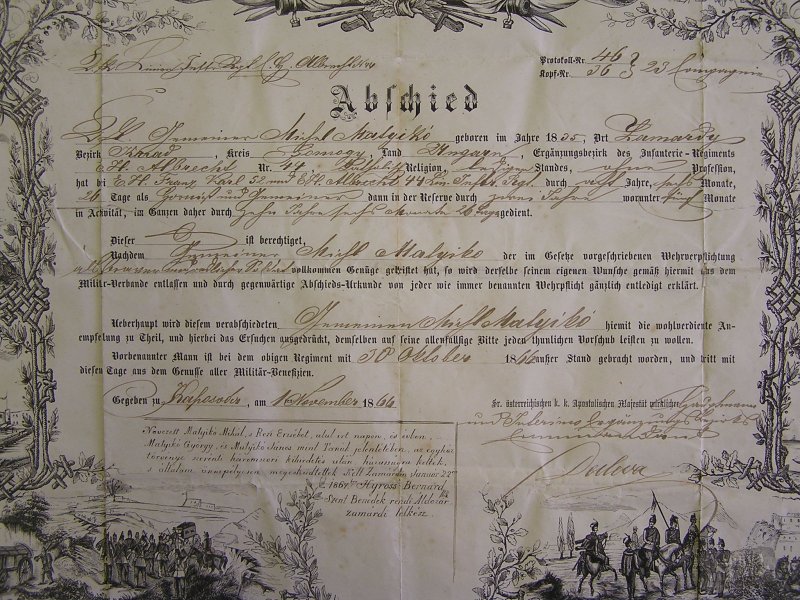 Protokoll-Nr. 46
Kopf-Nr. 36 23 Compagnie
Abschied
Gemeiner Michel Matyikó geboren im Jahre 1835, Ort Zamárdy
Bezirk Karad, Kreis Somogy Land Ungarn, Ergänzungsbezirk des Infanterie-Regiments
E.H. Albrecht Nr. 44 Religion, ledigen Standes, ohne Profession,
hat bei E.H. Franz Karl 52 und E.H. Albrecht 44 Lin. Inftr. Regt. durch acht Jahre, sechs Monate,
26 Tage als Gemeiner dann in der Reserve durch zwei Jahre worunter Monate
in Activität, im Ganzen daher durch Zehn Jahre sechs Monate 26 Tage gedient.
Dieser ist berechtiget,
Nachdem Gemeiner Michl Matyiko der im Gesetze vorgeschriebenen Wehrverpflichtung
vollkommen Genüge geleistet hat, so wird derselbe seinem eigenen Wunsche gemäß hiermit aus dem
Militär-Verbande entlassen und durch gegenwärtige Abschieds-Urkunde von jeder wie immer benannten Wehrpflicht gänzlich entledigt erklärt.
Ueberhaupt wird diesem verabschiedeten Gemeinen Michl Matyikó hiemit die wohlverdiente An-
empfelung zu Theil, und hierbei das Ersuchen ausgedrückt, demselben auf seine allenfallsige Bitte jeden thunlichen Vorschub leisten zu wollen.
Vorbenannter Mann ist bei dem obigen Regiment mit 30 Oktober 1866 außer Stand gebracht worden, und tritt mit
diesen Tage aus dem Genusse aller Militär-Benefizien.
Gegeben zu Kaposvár, am 16 November 1866
Sr. österreichischen k. k. Apostolischen Majestät wirklicher Hauptmann
und Ergänzungs Bezirks
Commandant
Nevezett Matyiko Mihál, s Resi Erzsébet, alul irt napon, és évben,
Matyikó György, és Matyikó János mint Tanuk jelenlétében, az egyház
törvénye szerént háromszori kihirdetés után házasságra keltek,
s általam ünnepélyesen megeskudtettek. Kelt Zamárdin Januar 22én
1867. Kyross Bernárd mk
Szent Benedek rendi Áldozár
zamárdi lelkész